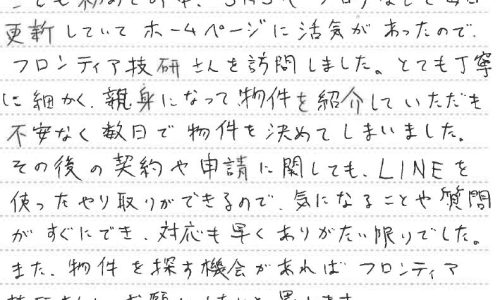 更新していてホームページに活気があったので、
フロンティア技研さんを訪問しました。とても丁寧
に細かく、親身になって物件を紹介していただき
不安なく数日で物件を決めてしまいました。
その後の契約や申請に関しても、LINEを
使ったやり取りができるので、気になることや質問
がすぐにでき、対応も早くありがたい限りでした。
また、物件を探す機会があればフロンティア